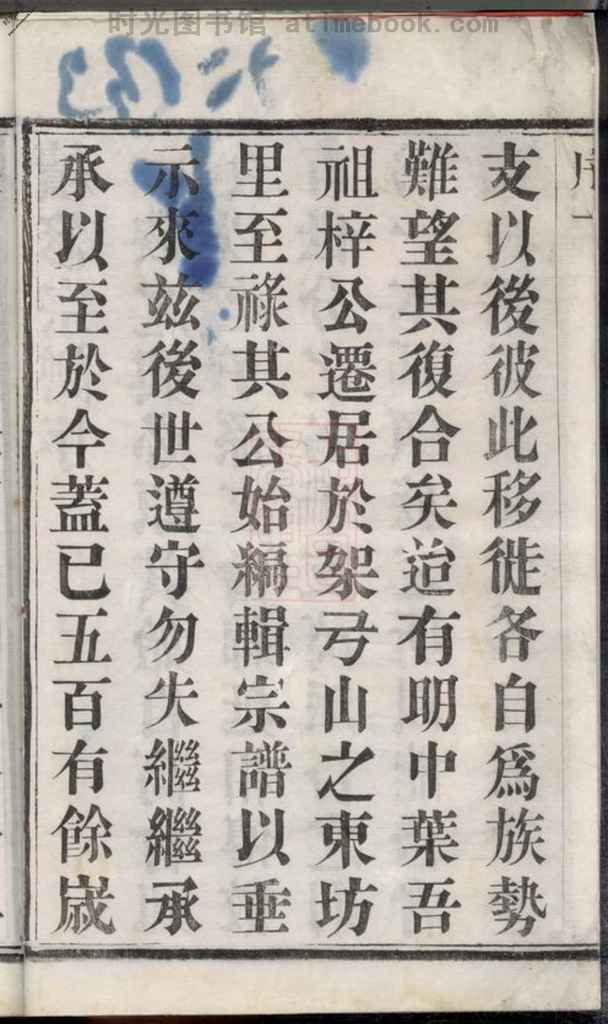 时光图书馆 atimebook.com
序一
支以後彼此移徙各自爲族勢
難望其復合矣迨有明中葉吾
祖梓公遷居於架弓山之東坊
里至祿其公始編輯宗譜以垂
示來茲後世遵守勿失繼繼承
承以至於今蓋已五百有餘歲